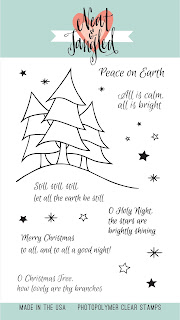 Neat & Tangled
Peace on Earth
All is calm,
all is bright
Still, still, still
let all the earth be still
O Holy Night,
the stars are
brightly shining
Merry Christmas
to all, and to all a good night!
O Christmas Tree,
how lovely are thy branches
MADE IN THE USA PHOTOPOLYMER CLEAR STAMPS